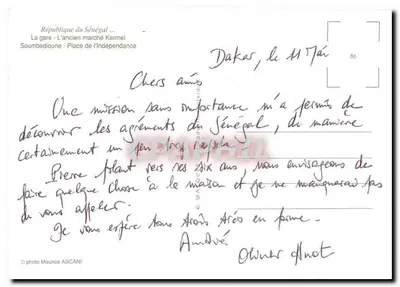 République du Sénégal ...
La gare - L'ancien marché Kermel
Soumbedioune - Place de l'Indépendance
Dakar, le 11 Mai
Chers amis
Une mission sans importance m'a permis de
découvrir les agréments du Sénégal, de manière
certainement un peu trop rapide.
Pierre fêtant ses six ans, nous envisageons de
faire quelque chose à la maison et je ne manquerai pas
de vous appeler.
Je vous espère tous trois très en forme.
Amitiés
Olivier
© photo Maurice ASCANI